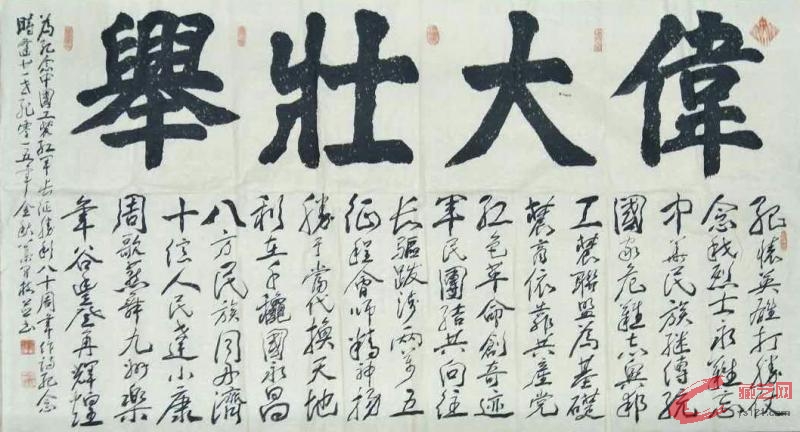 偉大壯舉
紀懷英雄打勝仗
念我烈士永難忘
中華民族继傳統
國家危難志興邦
工農聯盟為基礎
農商依靠共產黨
紅色革命創奇迹
軍民團结共向往
长驅跋涉两萬五
征程會师精神揚
勝于當代换天地
利在千穐國永昌
八方民族同舟濟
十億人民達小康
周歌燕舞九州樂
年谷豐登再輝煌
為紀念中國工農紅軍长征勝利八十周年作詩紀念
零一五年金秋